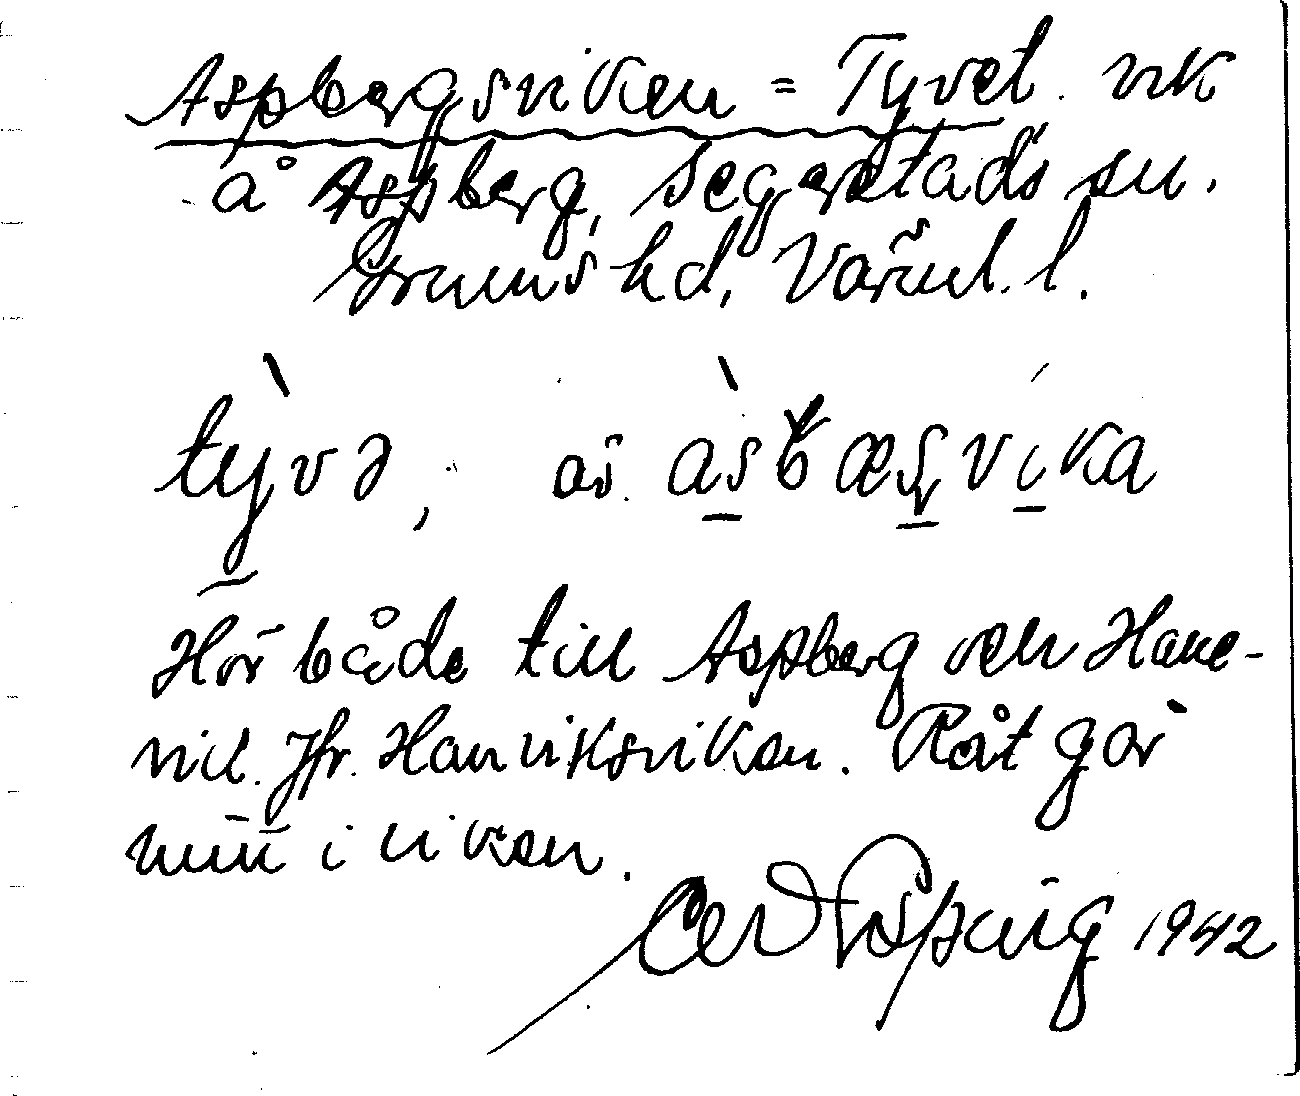 Aspbergsviken = Tyvet. vik
å Aspberg, Segerstads sn.
Grums hd, Värml. l.
tỳvə, äv. àsbæṣvíka
Hör både till Aspberg och Hane-
vik. Jfr. Hanviksviken. Råt går
inn i viken.
1942